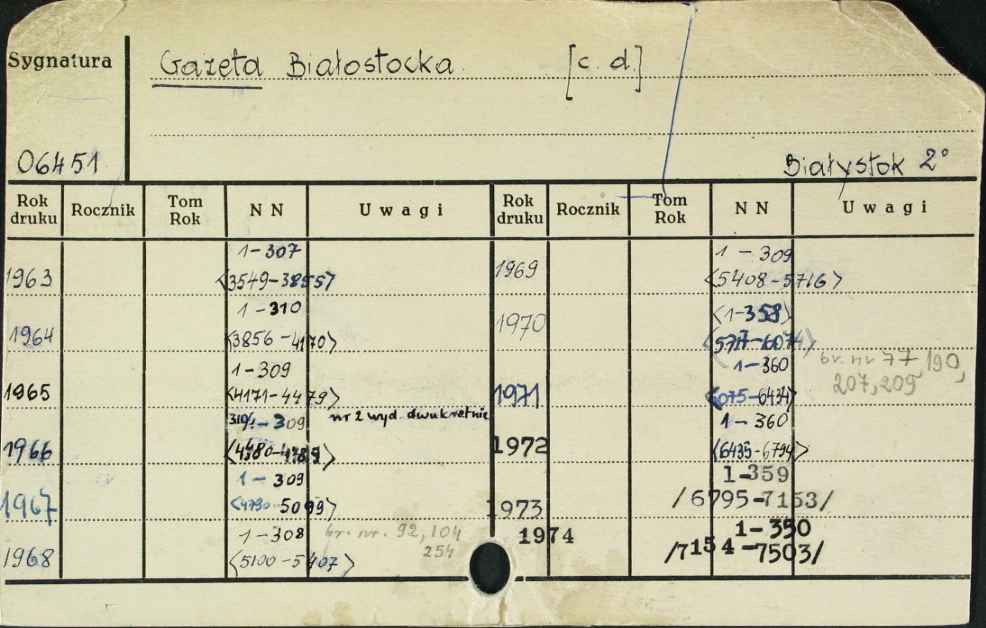 Sygnatura
Gazeta Białostocka [c. d.]
06451
Białystok 2°
Rok druku Rocznik Tom Rok NN Uwagi Rok druku Rocznik Tom Rok NN Uwagi
1963 1-307 <3549-3855>
1964 1-310 <3856-4170>
1965 1-309 <4171-4479>
1966 309 <4480-4789> nr 2 wyd. dwukrotnie
1967 1-309 <4790-5099>
1968 1-308 <5100-5407> br. nr. 92, 104 254
1969 1-309 <5408-5716>
1970 <1-358> <5717-6074>
br. nr 77, 190, 207, 209
1971 1-360 <6075-6434>
1972 1-360 <6435-6794>
1973 1-359 /6795-7153/
1974 1-350 /7154-7503/